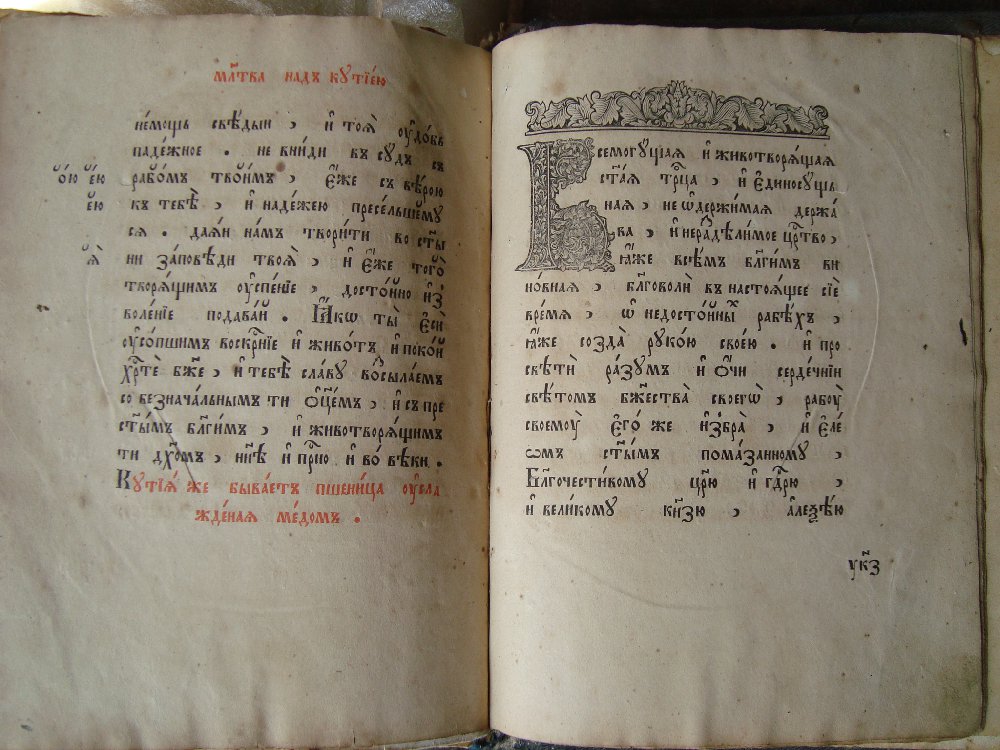 мл҃тва надъ кутїею
не́мощь свѣ́дый , и҆ тоѧ̀ оу҆до́бь
паде́жное . не вни́ди въ су́дъ съ
о́ю е́ю рабо́мъ твои́мъ , е҆́же съ вѣ́рою
е́ю къ тебѣ̀ , и҆ наде́жею пресе́льшемꙋ
сѧ . да́ѧй на́мъ твори́ти во ст҃ы
ѧ̀ ни за́повѣди твоѧ̀ , и҆ е҆́же того̀
творѧ́щимъ оу҆спе́нїе , досто́йно и҆з̾
воле́нїе подава́й . Ꙗ҆́кѡ ты̀ е҆сѝ
оу҆со́пшимъ воскр҃нїе и҆ живо́тъ и҆ поко́й
хр҃те́ бж҃е , и҆ тебѣ̀ сла́ву во́сылаемъ
со безнача́льнымъ ти о҆ц҃е́мъ , и҆ съ пре
ст҃ы́мъ бл҃ги́мъ , и҆ животворѧ́щимъ
ти дх҃омъ , нн҃ѣ и҆ пр҃но и҆ во́ вѣки .
Кутїѧ́ же быва́етъ пшени́ца оу҆сла
жде́наѧ ме́домъ .
Всемогу́щїаѧ и҆ животворѧ́щаѧ
ст҃а́ѧ тр҃ца , и҆ е҆диносу́щь
наѧ , не ѡ҆держи́маѧ держа́
ва , и҆ нера́дѣли́мое црⷭ҇тво ,
ꙗ҆́же всѣ́мъ бл҃ги́мъ ви
но́внаѧ , бл҃говолѝ въ настоѧ́щее сїѐ
вре́мѧ , ѡ҆ недосто́йны́хъ рабѣ́хъ ,
ꙗ҆́же созда̀ руко́ю свое́ю . и҆ про
свѣтѝ ра́зумъ и҆ о҆́чи серде́чнїи
свѣ́томъ бж҃ества̀ своегѡ̀ , рабоу̀
своемоу̀ е҆го́ же и҆збра̀ , и҆ е҆ле́
ѡмъ ст҃ы́мъ пома́занному ,
Бл҃гочести́вому цр҃ю и҆ гдⷭ҇рю ,
и҆ вели́кому кн҃зю , але́ѯѣю
ук҃з